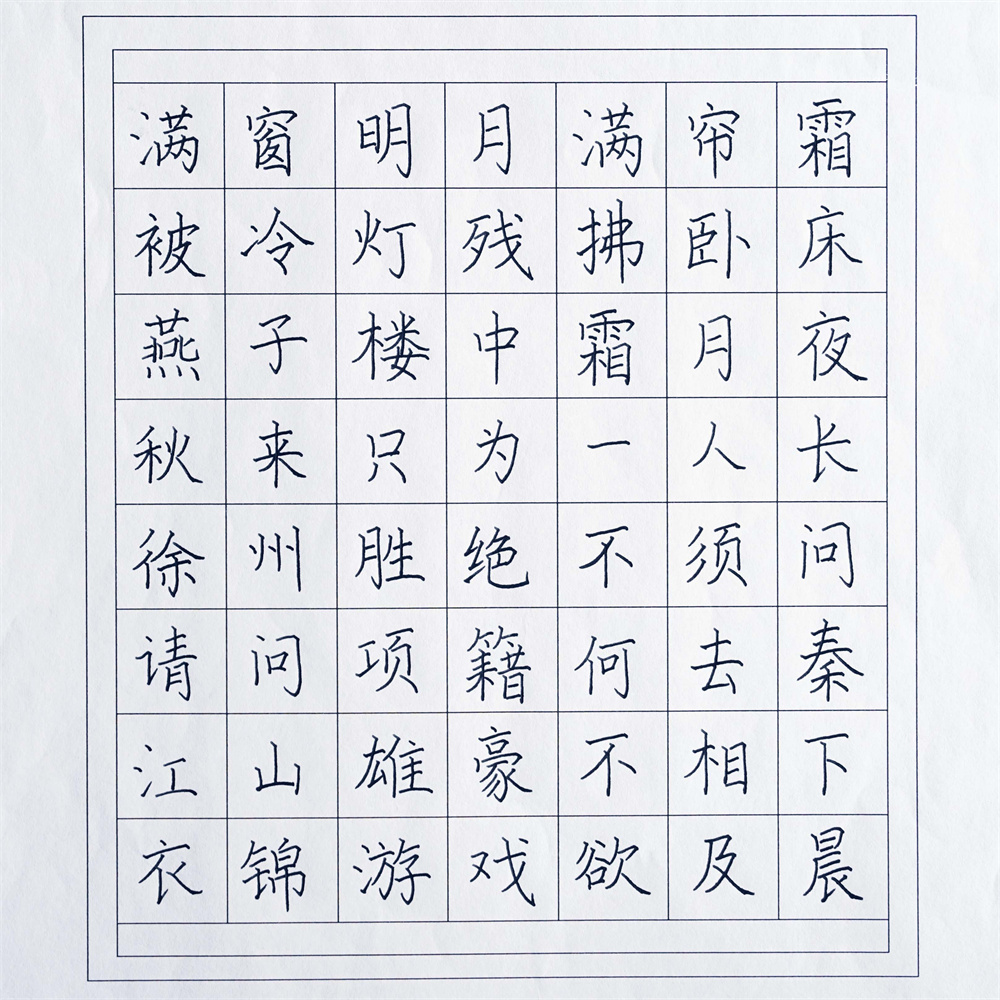 满窗明月满帘霜
被冷灯残拂卧床
燕子楼中霜月夜
秋来只为一人长
徐州胜绝不须问
请问项籍何去秦
江山雄豪不相下
衣锦游戏欲及晨